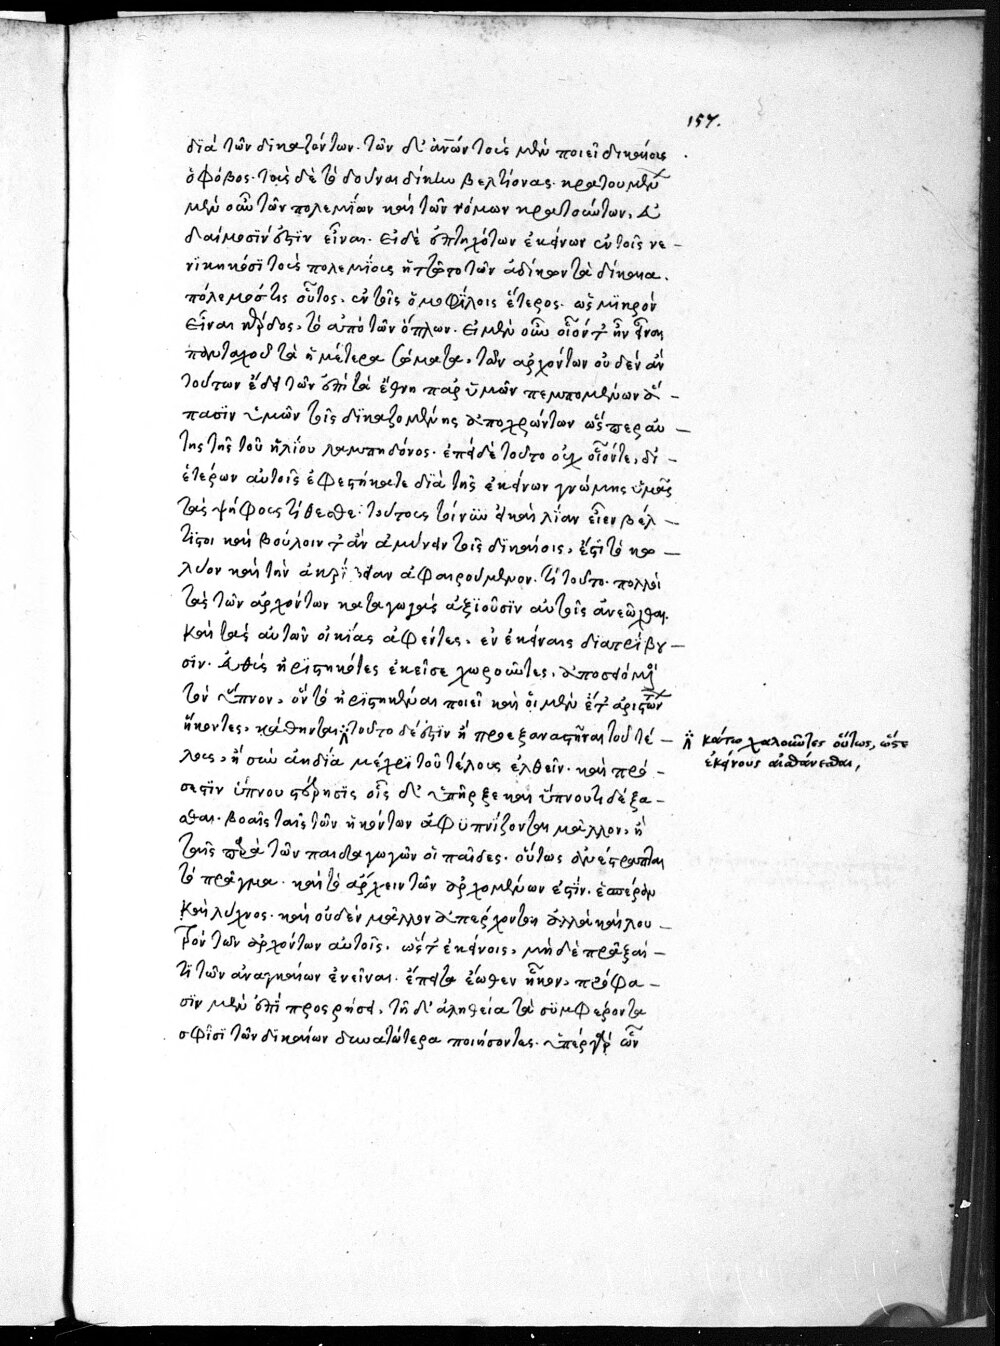 157.
διὰ τῶν δικαζόντων. τῶν δ' ἀνων τοὺς μὲν ποιεῖ δικαίους
ὁ φόβος. τοὺς δὲ τὸ δοῦναι δίκην βελτίονας. κρατουμεν
μὲν οὖν τῶν πολεμίων καὶ τῶν νόμων κρατούντων,
δαίμοσιν ἐστὶν εἶναι. εἰ δὲ ἐπτηχότων ἐκείνων ἐν τοῖς νε –
νικηκόσι τοὺς πολεμίους ἡττᾶτο τῶν ἀδίκων τὰ δίκαια.
πόλεμός τις οὗτος. ἐν τοῖς ὁμοφύλοις ἕτερος. ὡς μικρὸν
εἶναι κέρδος, τὸ ἀπὸ τῶν ὅπλων. εἰ μὲν οὖν οἷόν τ' ἦν εἶναι
πανταχοῦ τὰ ἡμέτερα σώματα, τῶν ἀρχόντων οὐδὲν ἂν
τούτων ἔδει τῶν ἐπὶ τὰ ἔθνη παρ' ὑμῶν πεμπομένων ἅ –
πασιν ὑμῶν τοῖς δικαζομένοις ἀποχρώντων ὥσπερ αὐ –
τῆς τῆς τοῦ ἡλίου λαμπηδόνος. ἐπεὶ δὲ τοῦτο οὐχ οἷόν τε, δι' –
ἑτέρων αὐτοῖς ἐφεστήκατε διὰ τῆς ἐκείνων γνώμης ὑμᾶς
τὰς ψήφους τίθεσθε. τούτους τοίνυν εἰ καὶ λίαν εἶεν βέλ –
τιστοι καὶ βούλοιντ' ἂν ἀμύνειν τοῖς δικαίοις, ἔστι τὸ κω –
λύον καὶ τὴν ἀκρίβειαν ἀφαιρούμενον. τί τοῦτο. πολλοὶ
τὰς τῶν ἀρχόντων καταγωγὰς ἀξιοῦσιν αὐτοῖς ἀνεῶχθαι.
καὶ τὰς αὐτῶν οἰκίας ἀφέντες, ἐν ἐκείναις διατρίβου –
σιν. εὐθὺς ἠριστηκότες ἐκεῖσε χωροῦντες, ἀποσόμενοι
τὸν ὕπνον, ὃν τὸ ἠριστηκέναι ποιεῖ καὶ οἱ μὲν ἔτ' ἀριστώντων
ἥκοντες, κάθηνται τοῦτο δέ ἐστιν ἢ προεξαναστῆναι τοῦ τέ –
λους, ἢ σὺν ἀηδίᾳ μέχρι τοῦ τέλους ἐλθεῖν. καὶ πρό –
σεστιν ὕπνου στέρησις οἷς δ' ὑπῆρξε καὶ ὕπνου τι δέξα –
σθαι. βοαῖς ταῖς τῶν ἡκόντων ἀφυπνίζονται μᾶλλον, ἢ
ταῖς παρὰ τῶν παιδαγωγῶν οἱ παῖδες. οὕτως ἀνέστραπται
τὸ πρᾶγμα. καὶ τὸ ἄρχειν τῶν ἀρχομένων ἐστίν. ἑσπέρα
καὶ λύχνος. καὶ οὐδὲν μᾶλλον ἀπέρχονται ἀλλὰ καὶ λου –
τρὸν τῶν ἀρχόντων αὐτοῖς. ὥστ' ἐκείνοις, μηδὲ πρᾶξαί –
τι τῶν ἀναγκαίων ἐνεῖναι. ἔπειτα ἕωθεν ἧκον, πρόφα –
σιν μὲν ἐπὶ προσρήσει, τῇ δ' ἀληθείᾳ τὰ συμφέροντα
σφίσι τῶν δικαίων δυνατώτερα ποιήσοντες. ὑπὲρ γὰρ ὧν
ἢ κάτω χαλοῦντες οὕτως, ὥστε
ἐκείνους αἰσθάνεσθαι,